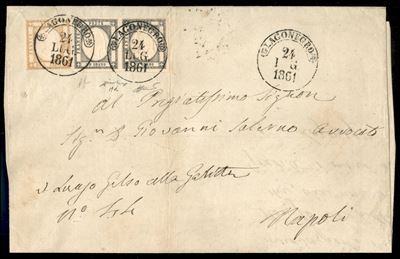 LAGONEGRO
24
LUG
1861
LAGONEGRO
24
LUG
1861
LAGONEGRO
24
LUG
1861
Al Pregiatissimo Signore
Sig.r D. Giovanni Salerno Avvocato
Largo Gelso alla
N°
Napoli